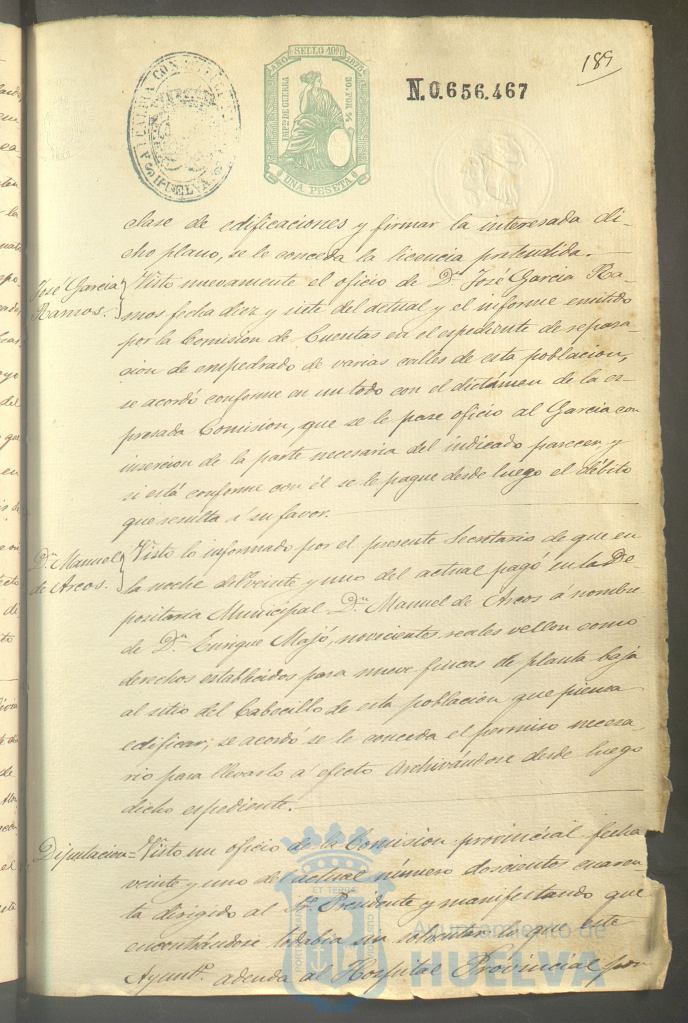 189
ALCALDIA CONSTITUCIONAL
HUELVA
AÑO SELLO 10º 1875
IMPTO DE GUERRA
50 POR %
UNA PESETA
N.0.656.467
clase de edificaciones y firmar la interesada di-
cho plano, se le conceda la licencia pretendida.
José Garcia
Ramos.
Visto nuevamente el oficio de Dn. José Garcia Ra-
mos fecha diez y siete del actual y el informe emitido
por la Comision de Cuentas en el espediente de repara-
cion de empedrado de varias calles de esta poblacion,
se acordó conforme en un todo con el dictámen de la es-
presada Comision, que se le pase oficio al Garcia con
insercion de la parte necesaria del indicado parecer, y
si está conforme con él se le pague desde luego el débito
que resulta á su favor.
Dn. Manuel
de Arcos.
Visto lo informado por el presente Secretario de que en
la noche del veinte y uno del actual pagó en la De-
positaria Municipal Dn. Manuel de Arcos á nombre
de Dn. Enrique Majó, novecientos reales vellon como
derechos establecidos para nueve fincas de planta baja
al sitio del Cabecillo de esta poblacion que piensa
edificar; se acordó se le conceda el permiso necesa-
rio para llevarlo á efecto archivándose desde luego
dicho espediente.
Diputacion=
Visto un oficio de la Comision provincial fecha
veinte y uno del actual número doscientos cuaren-
ta dirigido al Sr. Presidente y manifestando que
encontrándose todabia sin solventar lo que este
Ayuntº. adeuda al Hospital Provincial por
Ayuntamiento de
HUELVA